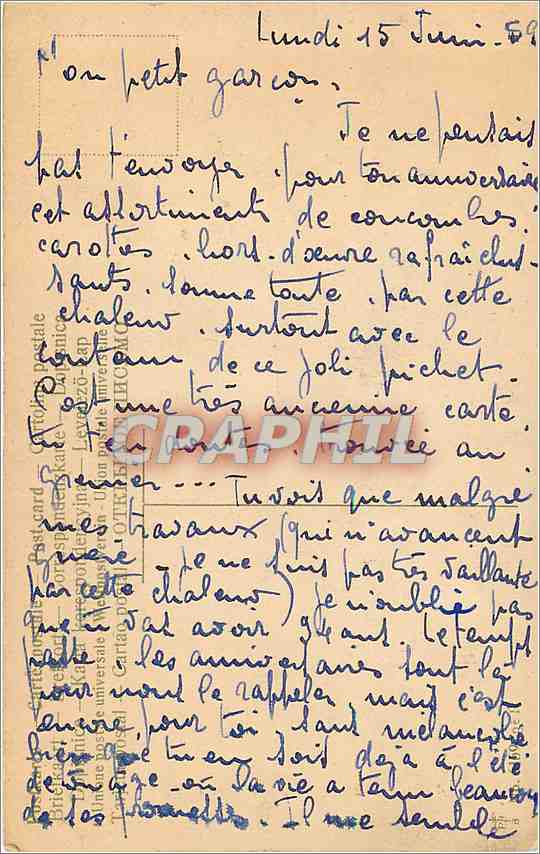 Lundi 15 Juin - 59
Mon petit garçon,
Je ne pensais
pas t'envoyer pour ton anniversaire
cet assortiments de concombres,
carottes, hors-d'œuvre rafraîchis-
sants, somme toute, par cette
chaleur. Surtout avec le
contenu de ce joli pichet.
C'est une très ancienne carte,
tu t'en doutes, trouvée au
grenier --- Tu vois que malgré
mes travaux (qui n'avancent
guère, je ne suis pas très vaillante
par cette chaleur) je n'oublie pas
que tu vas avoir 34 ans. Le temps
passe, les anniversaires sont là
pour nous le rappeler, mais c'est
encore, pour toi, sans mélancolie
bien que tu en sois déjà à l'été
de l'âge - où la vie a tenu beaucoup
de ses promesses. Il me semble
CPAPHIL
Carte postale - Post card - Cartolina postale
Union postale universelle